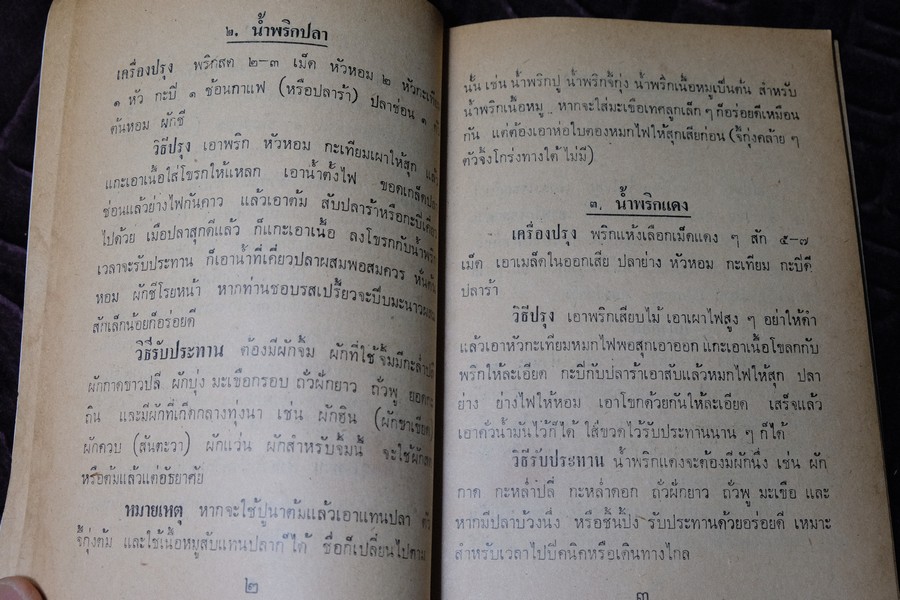 ๒. น้ำพริกปลา
เครื่องปรุง พริกสด ๒-๓ เม็ด หัวหอม ๒ หัวกะเทียม
๑ หัว กะปิ ๑ ช้อนกาแฟ (หรือปลาร้า) ปลาช่อน ๑
ต้นหอม ผักชี
วิธีปรุง เอาพริก หัวหอม กะเทียมเผาให้สุก แล้ว
แกะเอาเนื้อใส่โขรกให้แหลก เอาน้ำตั้งไฟ ขอดเกล็ดปลา
ช่อนแล้วย่างไฟกันคาว แล้วเอาต้ม สับปลาร้าหรือกะปิ
ไปด้วย เมื่อปลาสุกดีแล้ว ก็แกะเอาเนื้อ ลงโขรกกับน้ำพริก
เวลาจะรับประทาน ก็เอาน้ำที่เคี่ยวปลาผสมพอสมควร หั่นต้น
หอม ผักชีโรยหน้า หากท่านชอบรสเปรี้ยวจะบีบมะนาวผสม
สักเล็กน้อยก็อร่อยดี
วิธีรับประทาน ต้องมีผักจิ้ม ผักที่ใช้จิ้มมีกะล่ำปลี
ผักกาดขาวปลี ผักบุ่ง มะเขือกรอบ ถั่วฝักยาว ถั่วพู ยอดกะ
ถิน และมีผักที่เก็ดกลางทุ่งนา เช่น ผักฮิน (ผักขาเขียด)
ผักควบ (สันตะวา) ผักแว่น ผักสำหรับจิ้มนี้ จะใช้ผักสด
หรือต้มแล้วแต่อัธยาศัย
หมายเหตุ หากจะใช้ปูนาต้มแล้วเอาแทนปลา ตัว
จี้กุ่งต้ม และใช้เนื้อหมูสับแทนปลาก็ได้ ชื่อก็เปลี่ยนไปตาม
๒
นั้น เช่น น้ำพริกปู น้ำพริกจี้กุ่ง น้ำพริกเนื้อหมูเป็นต้น สำหรับ
น้ำพริกเนื้อหมู หากจะใส่มะเขือเทศลูกเล็ก ๆ ก็อร่อยดีเหมือน
กัน แต่ต้องเอาห่อใบตองหมกไฟให้สุกเสียก่อน (จี้กุ่งคล้าย ๆ
ตัวจิ้งโกร่งทางใต้ ไม่มี)
๓. น้ำพริกแดง
เครื่องปรุง พริกแห้งเลือกเม็ดแดง ๆ สัก ๕-๗
เม็ด เอาเมล็ดในออกเสีย ปลาย่าง หัวหอม กะเทียม กะปิดี
ปลาร้า
วิธีปรุง เอาพริกเสียบไม้ เอาเผาไฟสูง ๆ อย่าให้ดำ
แล้วเอาหัวกะเทียมหมกไฟพอสุกเอาออก แกะเอาเนื้อโขลกกับ
พริกให้ละเอียด กะปิกับปลาร้าเอาสับแล้วหมกไฟให้สุก ปลา
ย่าง ย่างไฟให้หอม เอาโขกด้วยกันให้ละเอียด เสร็จแล้ว
เอาคั่วน้ำมันไว้ก็ได้ ใส่ขวดไว้รับประทานนาน ๆ ก็ได้
วิธีรับประทาน น้ำพริกแดงจะต้องมีผักนึ่ง เช่น ผัก
กาด กะหล่ำปลี กะหล่ำดอก ถั่วฝักยาว ถั่วพู มะเขือ และ
หากมีปลาบ้วงนึ่ง หรือชิ้นปิ้ง รับประทานด้วยอร่อยดี เหมาะ
สำหรับเวลาไปปิ๊คนิคหรือเดินทางไกล
๓